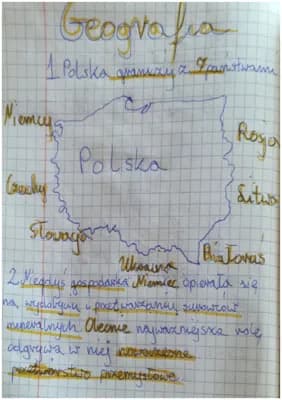 Geografia
1. Polska graniczy z 7 państwami
Niemcy
Rosja
Polska
Czechy
Litwa
Słowacja
Ukraina
Białoruś
2. Niegdyś gospodarka Niemiec opierała się
na wydobyciu i przetwarzaniu surowców
mineralnych. Obecnie najważniejszą rolę
odgrywa w niej nowoczesne
przetwórstwo przemysłowe.